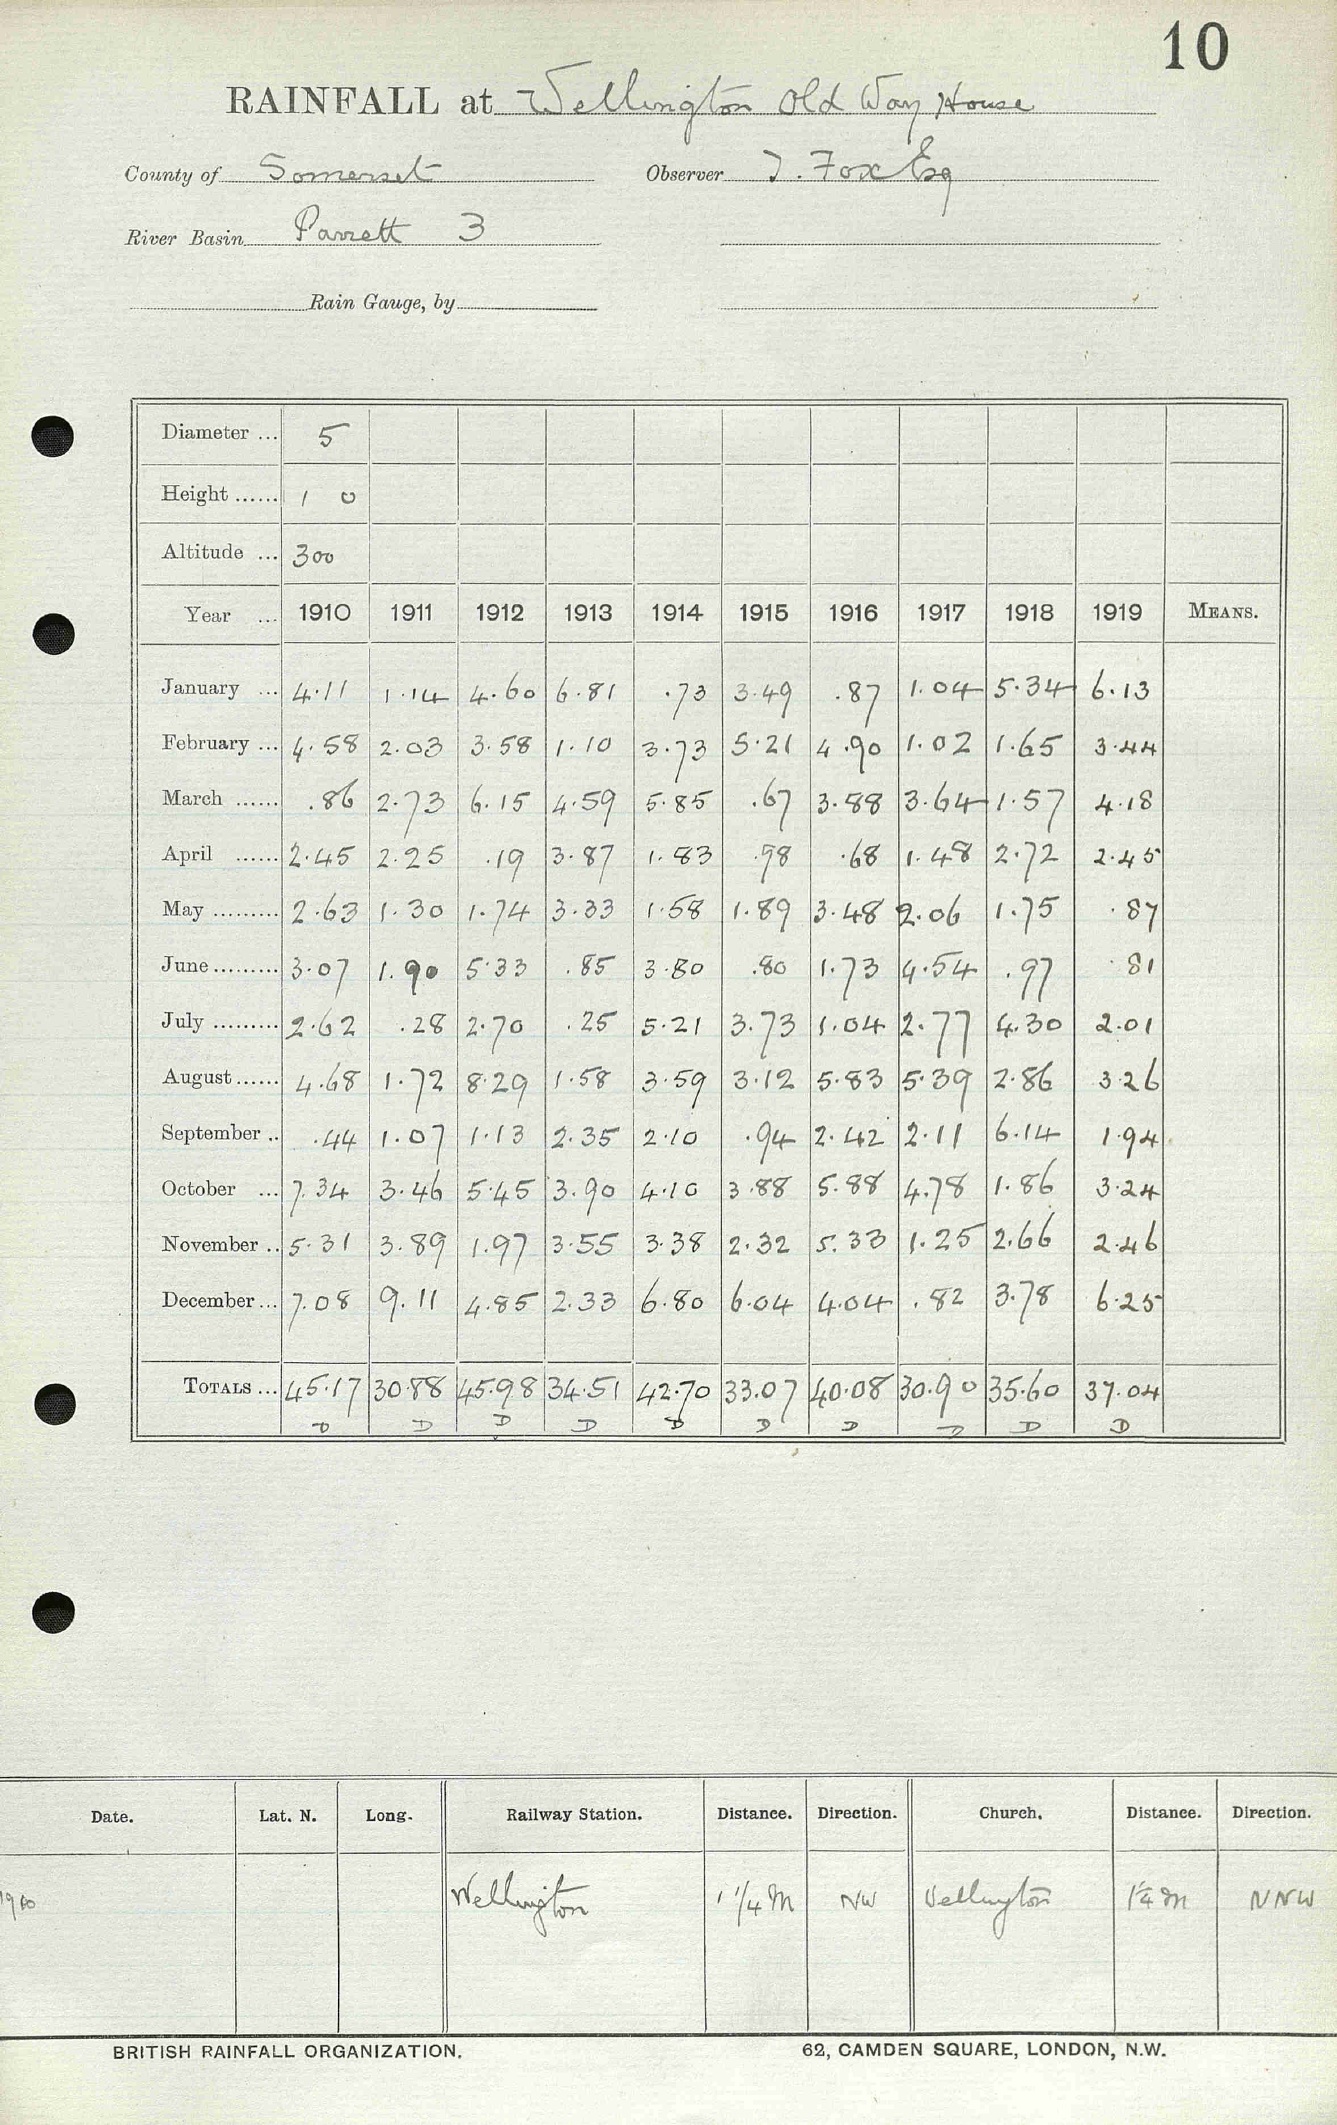 10
RAINFALL at Wellington Old Way House
County of Somerset Observer T. Fox Esq
River Basin Parrett 3
Rain Gauge, by
Diameter ... 5
Height ...... 1 0
Altitude ... 300
Year ... 1910 1911 1912 1913 1914 1915 1916 1917 1918 1919 MEANS.
January ... 4.11 1.14 4.60 6.81 .73 3.49 .87 1.04 5.34 6.13
February ... 4.58 2.03 3.58 1.10 3.73 5.21 4.90 1.02 1.65 3.44
March ...... .86 2.73 6.15 4.59 5.85 .67 3.88 3.64 1.57 4.18
April ...... 2.45 2.25 .19 3.87 1.83 .98 .68 1.48 2.72 2.45
May ......... 2.63 1.30 1.74 3.33 1.58 1.89 3.48 2.06 1.75 .87
June ......... 3.07 1.90 5.33 .85 3.80 .80 1.73 4.54 .97 .81
July ......... 2.62 .28 2.70 .25 5.21 3.73 1.04 2.77 4.30 2.01
August ...... 4.68 1.72 8.29 1.58 3.59 3.12 5.83 5.39 2.86 3.26
September .. .44 1.07 1.13 2.35 2.10 .94 2.42 2.11 6.14 1.94
October ... 7.34 3.46 5.45 3.90 4.10 3.88 5.88 4.78 1.86 3.24
November .. 5.31 3.89 1.97 3.55 3.38 2.32 5.33 1.25 2.66 2.46
December ... 7.08 9.11 4.85 2.33 6.80 6.04 4.04 .82 3.78 6.25
TOTALS ... 45.17 30.88 45.98 34.51 42.70 33.07 40.08 30.90 35.60 37.04
D D D D D D D D D D
Date. Lat. N. Long. Railway Station. Distance. Direction. Church. Distance. Direction.
Wellington 1 1/4 m NW Wellington 1 1/4 m NNW
BRITISH RAINFALL ORGANIZATION. 62, CAMDEN SQUARE, LONDON, N.W.